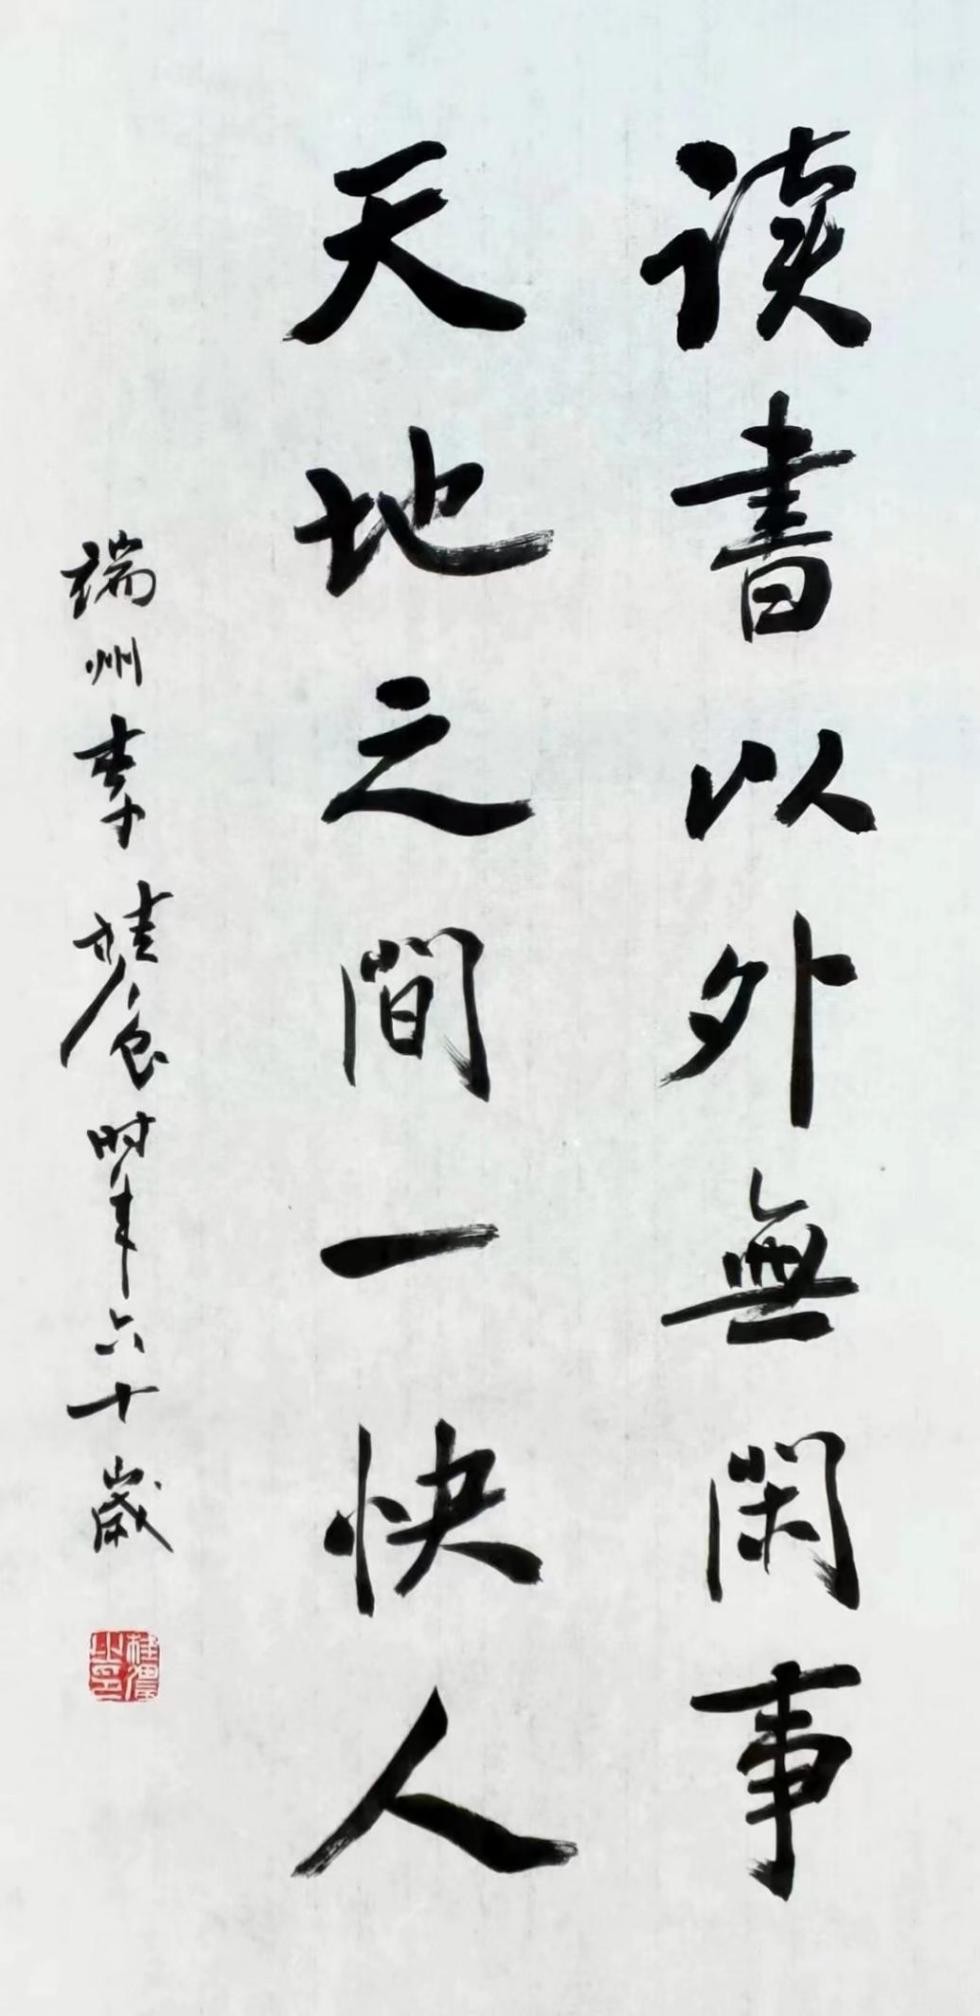 读書以外無閑事
天地之間一快人
瑞州李桂食时年六十歲